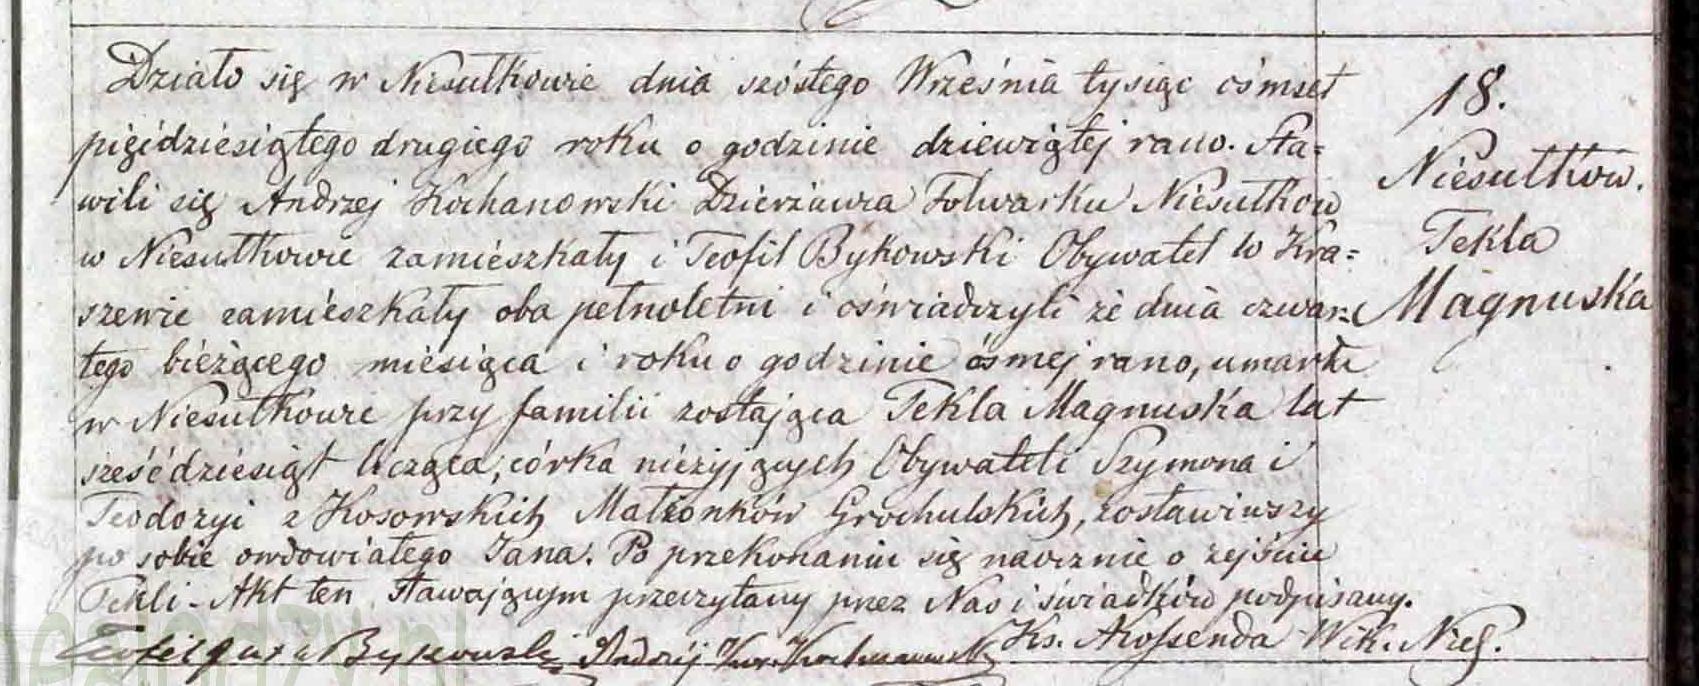 Działo się w Niesułkowie dnia szóstego Września tysiąc ośmset
pięćdziesiątego drugiego roku o godzinie dziewiątej rano. Sta=
wili się Andrzej Kochanowski Dzierżawca Folwarku Niesułków
w Niesułkowie zamieszkały i Teofil Bykowski Obywatel w Kra=
szewie zamieszkały oba pełnoletni i oświadczyli że dnia czwar=
tego bieżącego miesiąca i roku o godzinie ósmej rano, umarła
w Niesułkowie przy familii zostająca Tekla Magnuska lat
sześćdziesiąt licząca, córka nieżyjących Obywateli Szymona i
Teodozyi z Kosowskich Małżonków Grochulskich, zostawiwszy
po sobie owdowiałego Jana. Po przekonaniu się naocznie o zejściu
Tekli - Akt ten stawającym przeczytany przez Nas i świadków podpisany.
Teofil Bykowski Andrzej Kochanowski Ks. Wik. Nies.
18.
Niesułków.
Tekla
Magnuska